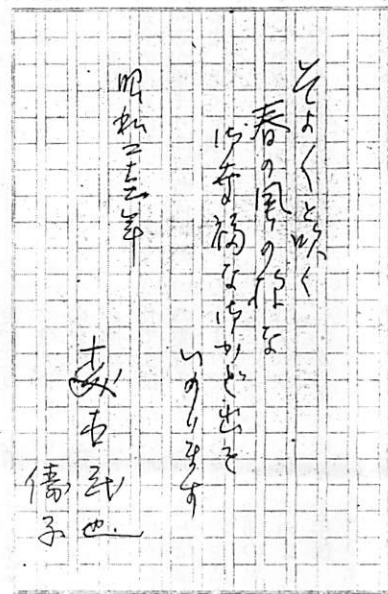 そよ〱と吹く
春の風の様な
御幸福な御かど出を
いのります
昭和二十一年
吉也
倩子